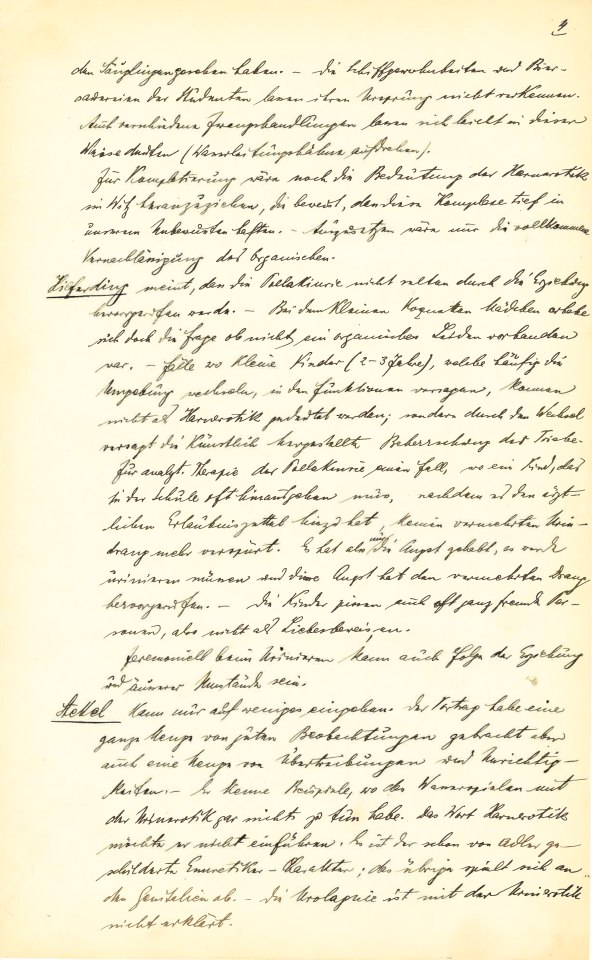 4
den Säuglingen gesehen haben. – Die Schiffgewohnheiten und Bier-
sauereien der Studenten lassen ihren Ursprung nicht verkennen.
Auch verschiedene Zwangshandlungen lassen sich leicht in dieser
Weise deuten (Wasserleitungshähne aufdrehen).
Zur Komplettierung wäre noch die Bedeutung der Harnerotik
im Witz heranzuziehen, die beweist, dass diese Komplexe tief in
unserem Unbewussten haften. – Auszusetzen wäre nur die vollkommene
Vernachlässigung des Organischen.
meint, dass die Pollakiurie nicht selten durch die Erziehung
hervorgerufen werde. – Bei dem kleinen koquetten Mädchen erhebe
sich doch die Frage ob nicht ein organisches Leiden vorhanden
war. – Fälle wo kleine Kinder (2–3 Jahre), welche häufig die
Umgebung wechseln, in den Funktionen versagen, können
nicht als Harnerotik gedeutet werden; sondern durch den Wechsel
versagt die künstlich hergestellte Beherrschung des Triebes.
Zur analyt. Therapie der Pollakiurie einen Fall, wo ein Kind, das
in der Schule oft hinausgehen muss, nachdem es den ärzt-
lichen Erlaubniszettel hiezu hat, keinen vermehrten Urin-
drang mehr verspürt. Es hat also nur die Angst gehabt, es werde
urinieren müssen und diese Angst hat den vermehrten Drang
hervorgerufen. – Die Kinder pissen auch oft ganz fremde Per-
sonen, also nicht als Liebesbeweis, an.
Zeremoniell beim Urinieren kann auch Folge der Erziehung
und äusserer Umstände sein.
Stekel kann nur auf weniges eingehen. Der Vortrag habe eine
ganze Menge von guten Beobachtungen gebracht aber
auch eine Menge von Übertreibungen und Unrichtig-
keiten. – Er kenne Beispiele, wo das Wasserspielen mit
der Urinerotik gar nichts zu tun habe. Das Wort Harnerotik
möchte er nicht einführen. Es ist der schon von Adler ge-
schilderte Enuretiker-Charakter; das übrige spielt sich an
den Genitalien ab. – Die Urolagnie ist mit der Urinerotik
nicht erklärt.